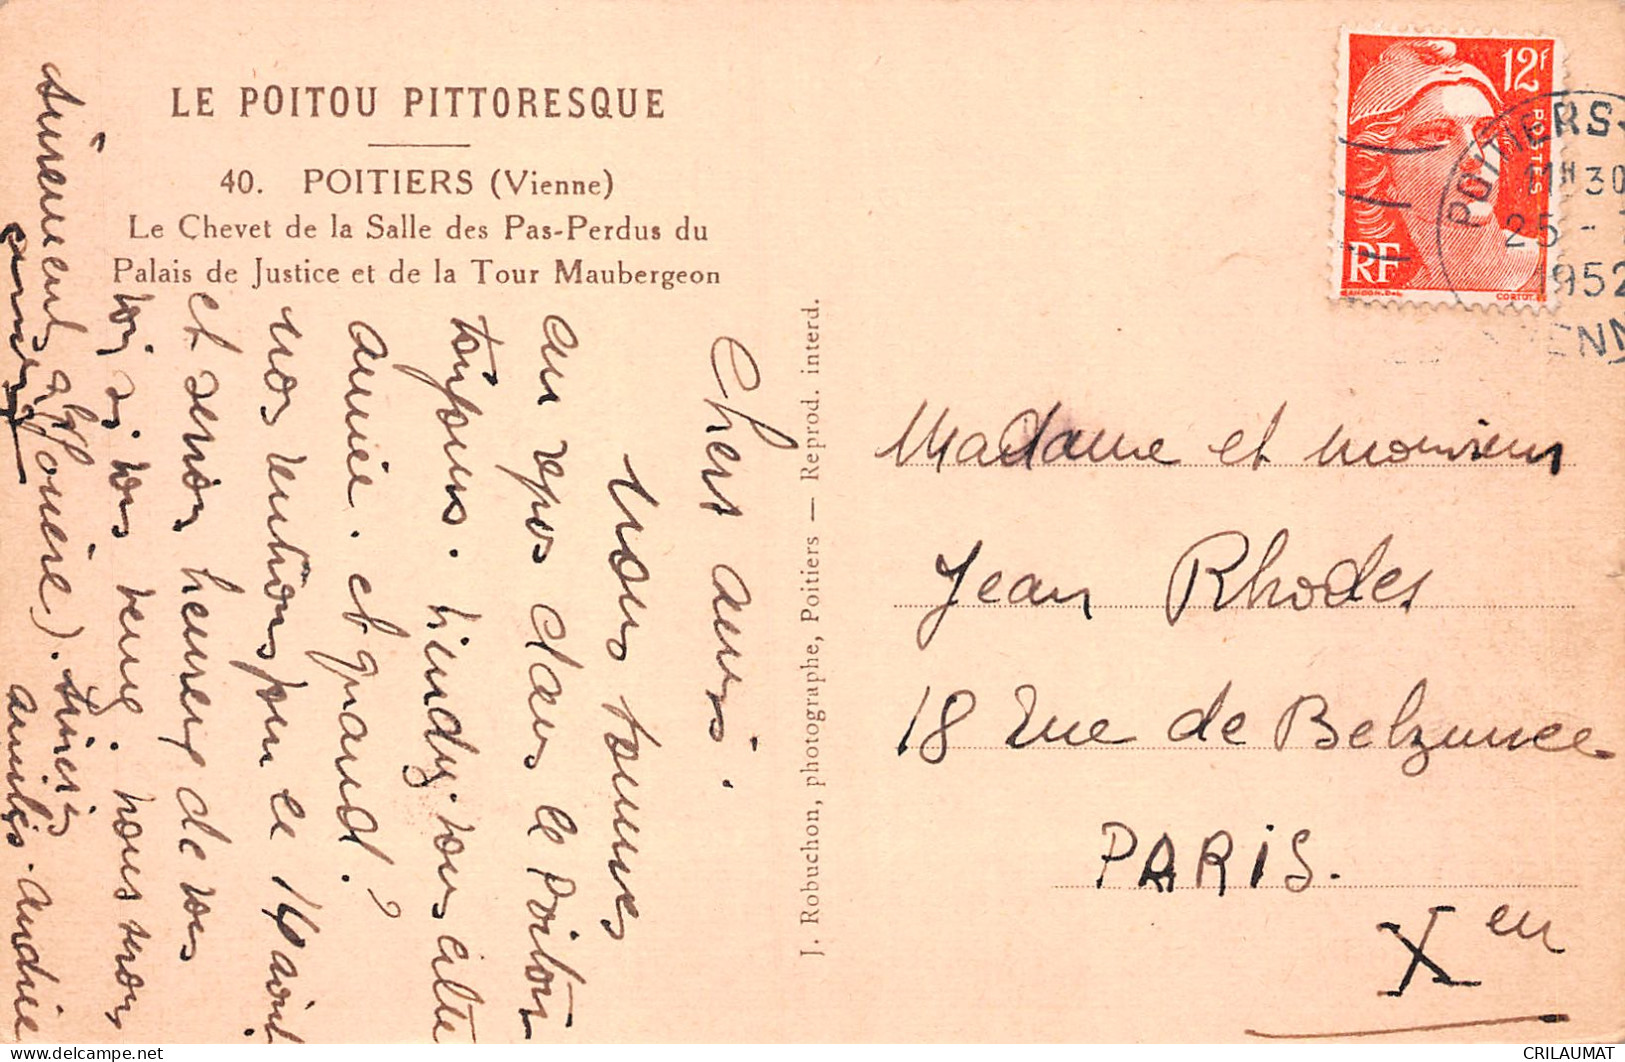 LE POITOU PITTORESQUE
40. POITIERS (Vienne)
Le Chevet de la Salle des Pas-Perdus du
Palais de Justice et de la Tour Maubergeon
J. Robuchon, photographe, Poitiers — Reprod. interd.
12F
POSTES
RF
GANDON. DEL
CORTOT.
POITIERS
11H30
25 -
1952
Chers amis.
Nous sommes
au repos dans le Poitou
toujours. viendez-vous cette
année. et quand?
nous rentrons pour le 14 août
et serions heureux de vous
voir si vous venez. nous irons
sûrement à
amitiés. Andrée
Madame et monsieur
Jean Rhodes
18 rue de Belzunce
PARIS.
X em
CRILAUMAT